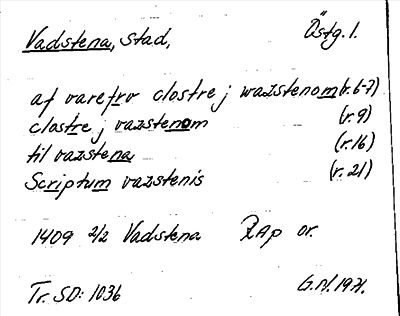 Vadstena, stad, Östg. l.
af varefrv clostre j wazstenom (r. 6-7)
clostre j vazstenom (r. 9)
til vazstena (r. 16)
Scriptum vazstenis (r. 21)
1409 2/2 Vadstena RAp or.
Tr. SD: 1036 1971.